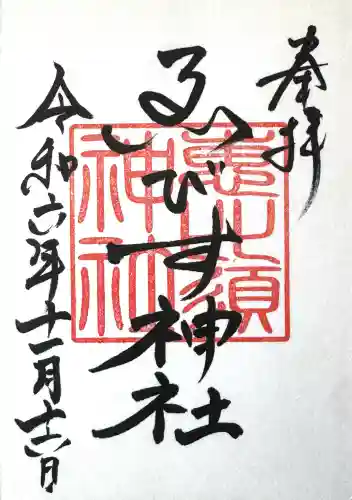 奉拝
ゑびす神社
恵比須
神社
令和六年十一月十六日